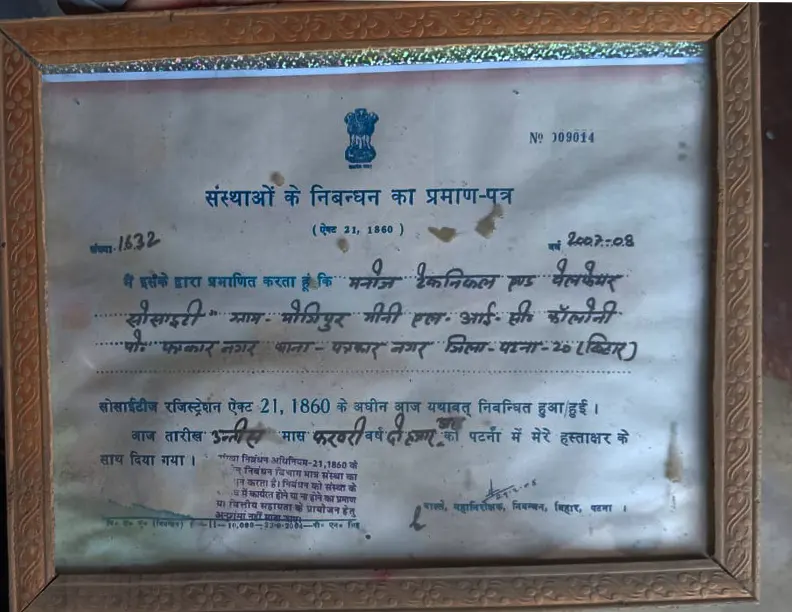 Nº 009014
संस्थाओं के निबन्धन का प्रमाण-पत्र
( ऐक्ट 21, 1860 )
संख्या 1632 वर्ष 2007-08
मैं इसके द्वारा प्रमाणित करता हूं कि मनोज टेकनिकल एण्ड वेलफेयर
सोसाइटी" ग्राम- योगिपुर मीनी एल- आई- सी० कॉलोनी
पो० पत्रकार नगर थाना - पत्रकार नगर जिला- पटना-20 (बिहार)
सोसाईटीज रजिस्ट्रेशन ऐक्ट 21, 1860 के अधीन आज यथावत् निबन्धित हुआ/हुई ।
आज तारीख उन्तीस मास फरवरी वर्ष दो हजार आठ को पटना में मेरे हस्ताक्षर के
साथ दिया गया ।
संस्था निबंधन अधिनियम-21,1860 के
निबंधन विभाग मात्र संस्था का
करता है। निबंधन को संस्था के
में कार्यरत होने या ना होने का प्रमाण
या वित्तीय सहायता के प्रायोजन हेतु
अनुशंसा नहीं माना जाय।
महानिरीक्षक, निबन्धन, बिहार, पटना ।